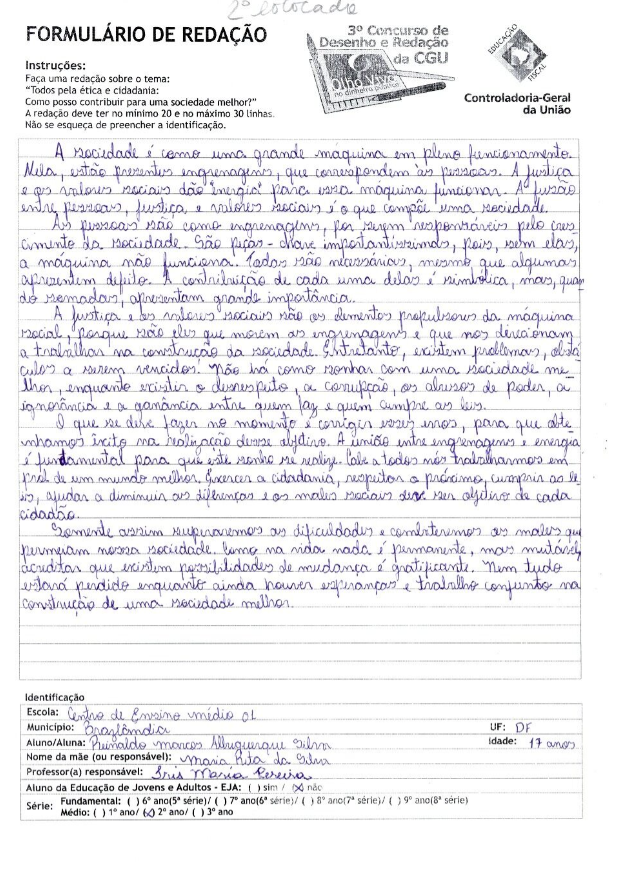 2º colocado
FORMULÁRIO DE REDAÇÃO
3º Concurso de
Desenho e Redação
da CGU
Olho Vivo
no dinheiro público
EDUCAÇÃO
FISCAL
Controladoria-Geral
da União
Instruções:
Faça uma redação sobre o tema:
"Todos pela ética e cidadania:
Como posso contribuir para uma sociedade melhor?"
A redação deve ter no mínimo 20 e no máximo 30 linhas.
Não se esqueça de preencher a identificação.
A sociedade é como uma grande máquina em pleno funcionamento.
Nela, estão presentes engrenagens, que correspondem às pessoas. A justiça
e os valores sociais dão "energia" para essa máquina funcionar. A fusão
entre pessoas, justiça, e valores sociais é o que compõe uma sociedade.
As pessoas são como engrenagens, por serem responsáveis pelo cres-
cimento da sociedade. São peças-chave importantíssimas, pois, sem elas,
a máquina não funciona. Todas são necessárias, mesmo que algumas
apresentem defeito. A contribuição de cada uma delas é simbólica, mas, quan-
do somadas, apresentam grande importância.
A justiça e os valores sociais são os elementos propulsores da máquina
social, porque são eles que movem as engrenagens e que nos direcionam
a trabalhar na construção da sociedade. Entretanto, existem problemas, obstá-
culos a serem vencidos. Não há como sonhar com uma sociedade me-
lhor, enquanto existir o desrespeito, a corrupção, os abusos de poder, a
ignorância e a ganância entre quem faz e quem cumpre as leis.
O que se deve fazer no momento é corrigir esses erros, para que obte-
nhamos êxito na realização desse objetivo. A união entre engrenagens e energia
é fundamental para que este sonho se realize. Cabe a todos nós trabalharmos em
prol de um mundo melhor. Exercer a cidadania, respeitar o próximo, cumprir as le-
is, ajudar a diminuir as diferenças e os males sociais deve ser objetivo de cada
cidadão.
Somente assim superaremos as dificuldades e combateremos os males que
permeiam nossa sociedade. Como na vida nada é permanente, mas mutável,
acreditar que existem possibilidades de mudança é gratificante. Nem tudo
estará perdido enquanto ainda houver esperanças e trabalho conjunto na
construção de uma sociedade melhor.
Identificação
Escola: Centro de Ensino médio 01
Município: Brazlândia UF: DF
Aluno/Aluna: Reinaldo Marcos Albuquerque Silva Idade: 17 anos
Nome da mãe (ou responsável): Maria Rita da Silva
Professor(a) responsável: Iris Maria Pereira
Aluno da Educação de Jovens e Adultos - EJA: ( ) sim / (x) não
Série: Fundamental: ( ) 6º ano(5ª série)/ ( ) 7º ano(6ª série)/ ( ) 8º ano(7ª série)/ ( ) 9º ano(8ª série)
Médio: ( ) 1º ano/ (x) 2º ano/ ( ) 3º ano